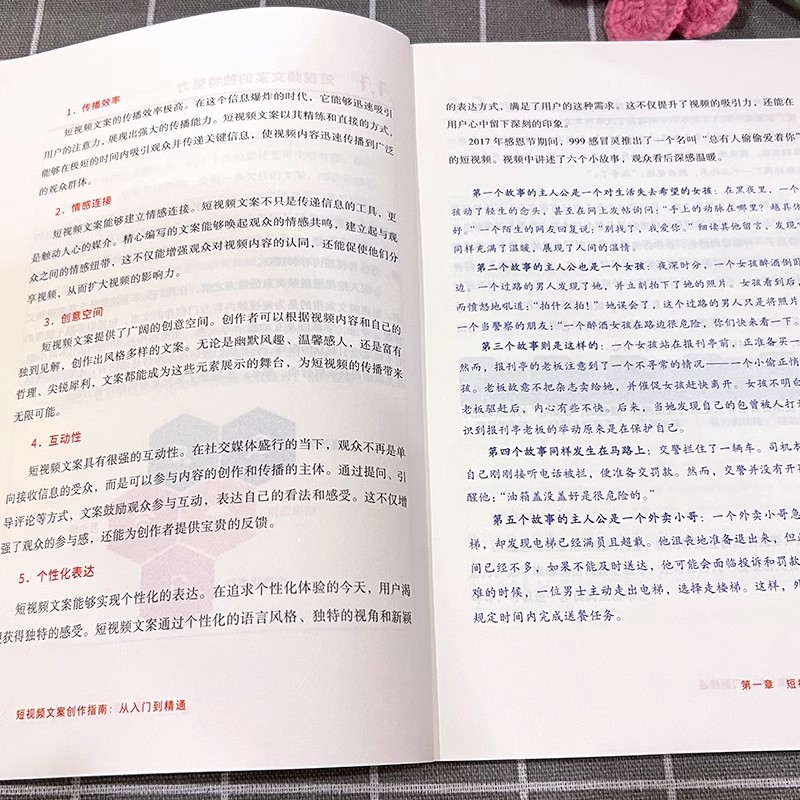 1. 传播效率
短视频文案的传播效率极高。在这个信息爆炸的时代，它能够迅速吸引
用户的注意力，展现出强大的传播能力。短视频文案以其精练和直接的方式，
能够在极短的时间内吸引观众并传递关键信息，使视频内容迅速传播到广泛
的观众群体。
2. 情感连接
短视频文案能够建立情感连接。短视频文案不只是传递信息的工具，更
是触动人心的媒介。精心编写的文案能够唤起观众的情感共鸣，建立起与观
众之间的情感纽带，这不仅能增强观众对视频内容的认同，还能促使他们分
享视频，从而扩大视频的影响力。
3. 创意空间
短视频文案提供了广阔的创意空间。创作者可以根据视频内容和自己的
独到见解，创作出风格多样的文案。无论是幽默风趣、温馨感人，还是富有
哲理、尖锐犀利，文案都能成为这些元素展示的舞台，为短视频的传播带来
无限可能。
4. 互动性
短视频文案具有很强的互动性。在社交媒体盛行的当下，观众不再是单
向接收信息的受众，而是可以参与内容的创作和传播的主体。通过提问、引
导评论等方式，文案鼓励观众参与互动，表达自己的看法和感受。这不仅增
强了观众的参与感，还能为创作者提供宝贵的反馈。
5. 个性化表达
短视频文案能够实现个性化的表达。在追求个性化体验的今天，用户渴
望获得独特的感受。短视频文案通过个性化的语言风格、独特的视角和新颖
短视频文案创作指南：从入门到精通
的表达方式，满足了用户的这种需求。这不仅提升了视频的吸引力，还能在
用户心中留下深刻的印象。
2017年感恩节期间，999感冒灵推出了一个名叫“总有人偷偷爱着你”
的短视频。视频中讲述了六个小故事，观众看后深感温暖。
第一个故事的主人公是一个对生活失去希望的女孩：在黑夜里，一个
孩动了轻生的念头，甚至在网上发帖询问：“手上的动脉在哪里？越具体
好。”一个陌生的网友回复说：“别找了，我爱你。”细读其他留言，发现
同样充满了温暖，展现了人间的温情。
第二个故事的主人公也是一个女孩：夜深时分，一个女孩醉酒倒
边，一个过路的男人发现了她，并立刻拍下了她的照片。女孩看到后，
而愤怒地吼道：“拍什么拍！”她误会了，这个过路的男人只是将照片
一个当警察的朋友：“一个醉酒女孩在路边很危险，你们快来看一下。
第三个故事则是这样的：一个女孩站在报刊亭前，正准备买一
然而，报刊亭的老板注意到了一个不寻常的情况——一个小偷正悄
孩。老板故意不把杂志卖给她，并催促女孩赶快离开。女孩不明白
老板驱赶后，内心有些不快。后来，当她发现自己的包曾被人打开
识到报刊亭老板的举动原来是在保护自己。
第四个故事同样发生在马路上：交警拦住了一辆车。司机本
自己刚刚接听电话被拦，便准备交罚款。然而，交警并没有开
醒他：“油箱盖没盖好是很危险的。”
第五个故事的主人公是一个外卖小哥：一个外卖小哥急
梯，却发现电梯已经满员且超载。他沮丧地准备退出来，但
间已经不多，如果不能及时送达，他可能会面临投诉和罚款
难的时候，一位男士主动走出电梯，选择走楼梯。这样，外
规定时间内完成送餐任务。
第一章 短